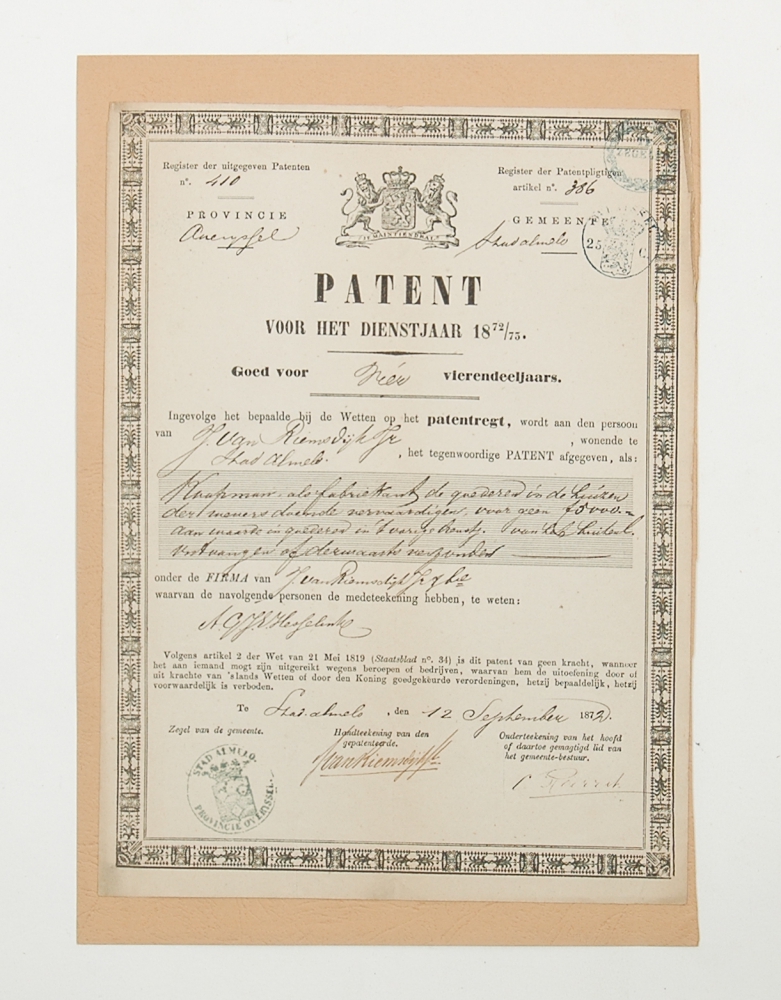 Register der uitgegeven Patenten
n°. 410
PROVINCIE
Overijssel
JE MAINTIENDRAI
Register der Patentpligtigen
artikel n°. 386
GEMEENTE
Stad Almelo
25 C
PATENT
VOOR HET DIENSTJAAR 18⁷²/₇₃.
Goed voor Vier vierendeeljaars.
Ingevolge het bepaalde bij de Wetten op het patentregt, wordt aan den persoon
van J. van Riemsdijk Jr , wonende te
Stad Almelo. , het tegenwoordige PATENT afgegeven, als:
Koopman: als fabriekant de goederen in de huizen
der wevers doende vervaardigen, voor een f5000.-
aan waarde in goederen in 't vorige van het buitenl.
ontvangen of derwaarts verzonden
onder de FIRMA van J. van Riemsdijk Jr & Cie
waarvan de navolgende personen de medeteekening hebben, te weten:
Hesselink
Volgens artikel 2 der Wet van 21 Mei 1819 (Staatsblad n°. 34) is dit patent van geen kracht, wanneer
het aan iemand mogt zijn uitgereikt wegens beroepen of bedrijven, waarvan hem de uitoefening door of
uit krachte van 'slands Wetten of door den Koning goedgekeurde verordeningen, hetzij bepaaldelijk, hetzij
voorwaardelijk is verboden.
Te Stad Almelo , den 12 September 1872.
Zegel van de gemeente.
STAD ALMELO
PROVINCIE OVERIJSSEL
Handteekening van den
gepatenteerde.
van Riemsdijk Jr
Onderteekening van het hoofd
of daartoe gemagtigd lid van
het gemeente-bestuur.